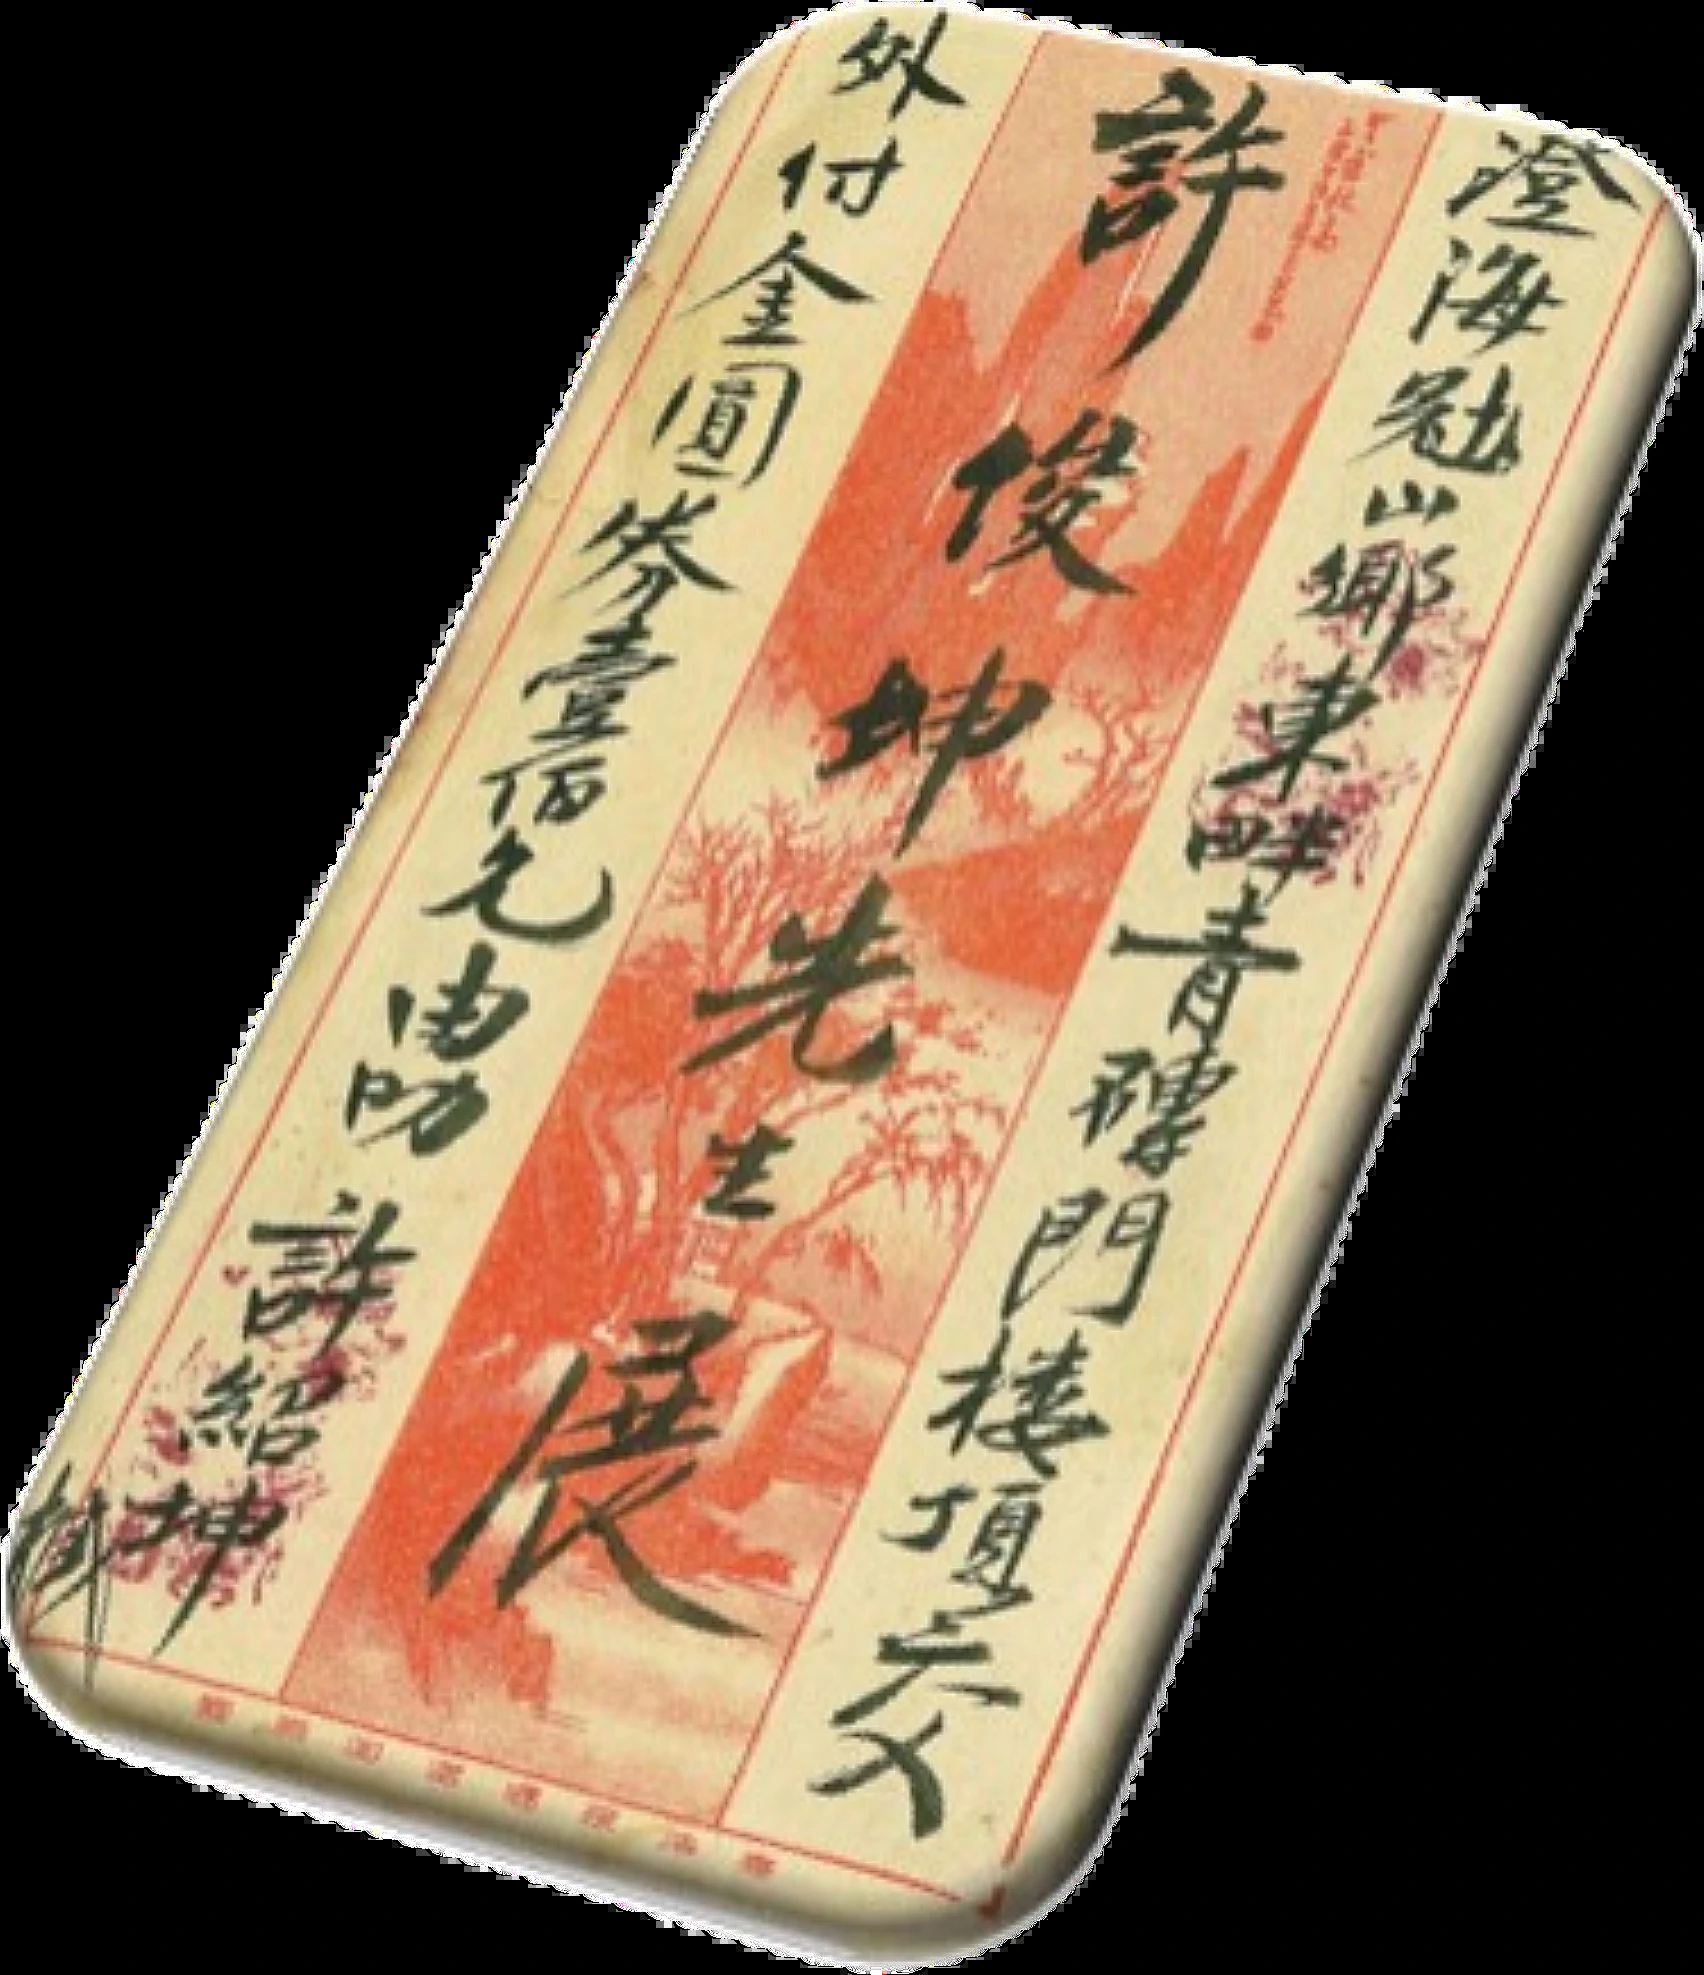 澄海冠山鄉東畔青磚門楼頂交
許俊坤先生展
外付金圓券壹佰元由叻許紹坤